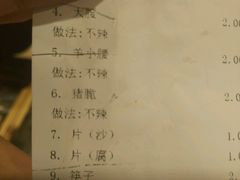 4. 大腰
做法:不辣 2.00
5. 羊小腰
做法:不辣 2.0
6. 猪脆
做法:不辣 2.
7. 片（沙） 1.0
8. 片（腐） 1.
9. 筷子